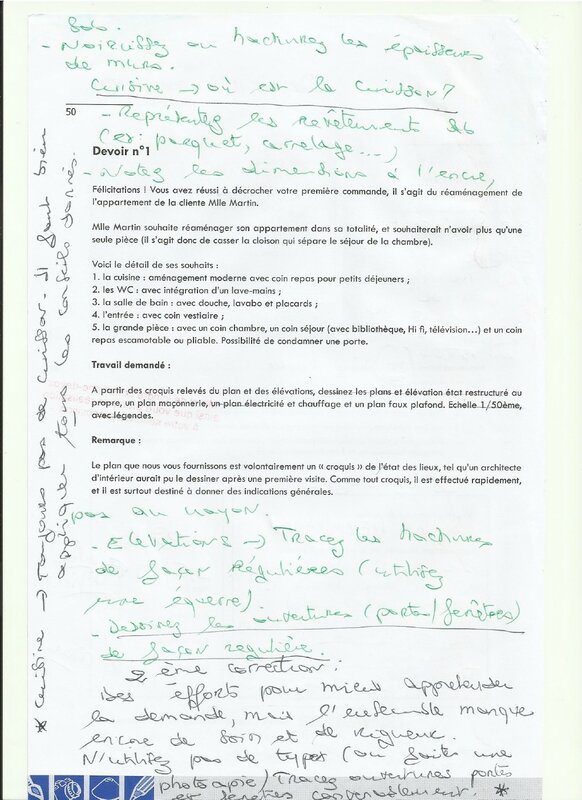 sdb.
- Noircissez ou hachurez les épaisseurs
de murs.
Cuisine → où est la cuisson ?
50
- Représentez les revêtements sdb
(ex: parquet, carrelage...)
Devoir n°1
- Notez les dimensions à l'encre,
Félicitations ! Vous avez réussi à décrocher votre première commande, il s'agit du réaménagement de
l'appartement de la cliente Mlle Martin.
Mlle Martin souhaite réaménager son appartement dans sa totalité, et souhaiterait n'avoir plus qu'une
seule pièce (il s'agit donc de casser la cloison qui sépare le séjour de la chambre).
Voici le détail de ses souhaits :
1. la cuisine : aménagement moderne avec coin repas pour petits déjeuners ;
2. les WC : avec intégration d'un lave-mains ;
3. la salle de bain : avec douche, lavabo et placards ;
4. l'entrée : avec coin vestiaire ;
5. la grande pièce : avec un coin chambre, un coin séjour (avec bibliothèque, Hi fi, télévision...) et un coin
repas escamotable ou pliable. Possibilité de condamner une porte.
Travail demandé :
A partir des croquis relevés du plan et des élévations, dessinez les plans et élévation état restructuré au
propre, un plan maçonnerie, un plan électricité et chauffage et un plan faux plafond. Echelle 1/50ème,
avec légendes.
Remarque :
Le plan que nous vous fournissons est volontairement un « croquis » de l'état des lieux, tel qu'un architecte
d'intérieur aurait pu le dessiner après une première visite. Comme tout croquis, il est effectué rapidement,
et il est surtout destiné à donner des indications générales.
pas au crayon.
- Elévations → Tracez les hachures
de façon régulières (utilisez
une équerre)
- Dessinez les ouvertures (portes/fenêtres)
de façon régulière.
2ème correction :
Des efforts pour mieux appréhender
la demande, mais l'ensemble manque
encore de soin et de rigueur.
N'utilisez pas de typex (ou faites une
photocopie) Tracez ouvertures portes
et fenêtres convenablement. *
* Cuisine → Toujours pas de cuisson. Il faut bien
appliquer tous les conseils donnés.